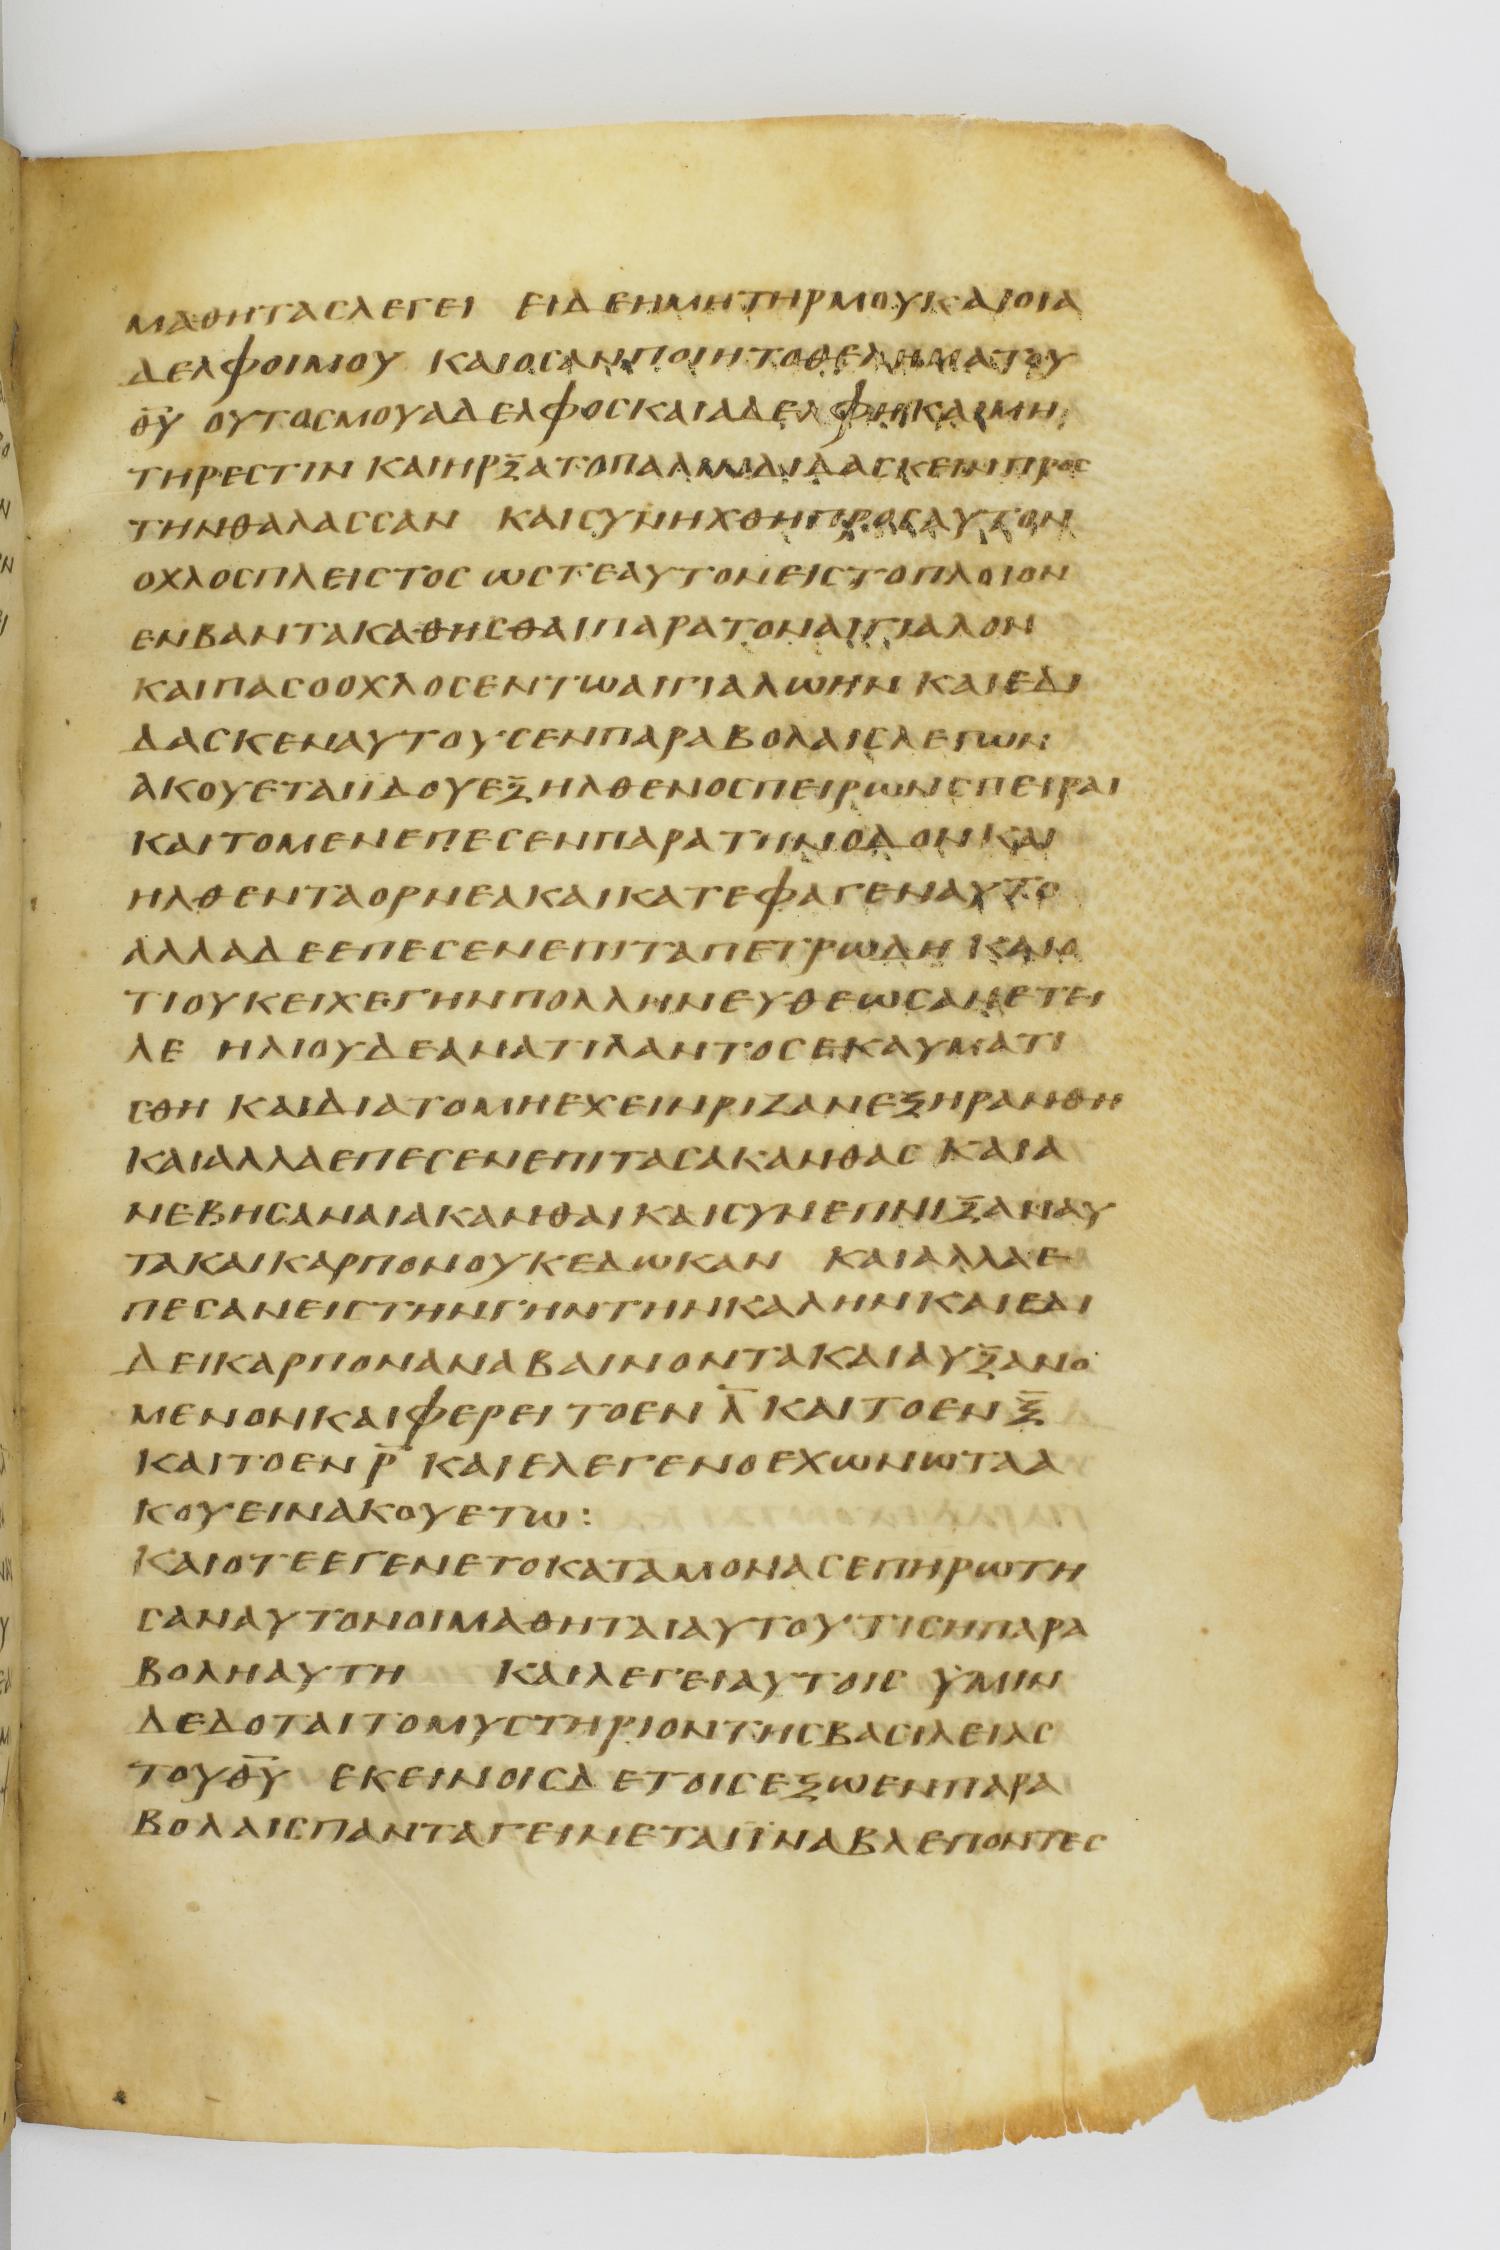 ΜΑΘΗΤΑΣΛΕΓΕΙ ΕΙΔΕΗΜΗΤΗΡΜΟΥΚΑΙΟΙΑ
ΔΕΛΦΟΙΜΟΥ ΚΑΙΟΣΑΝΠΟΙΗΤΟΘΕΛΗΜΑΤΟΥ
Θ̅Υ̅ ΟΥΤΟΣΜΟΥΑΔΕΛΦΟΣΚΑΙΑΔΕΛΦΗΚΑΙΜΗ
ΤΗΡΕΣΤΙΝ ΚΑΙΗΡΞΑΤΟΠΑΛΙΝΔΙΔΑΣΚΕΙΝΠΡΟΣ
ΤΗΝΘΑΛΑΣΣΑΝ ΚΑΙΣΥΝΗΧΘΗΠΡΟΣΑΥΤΟΝ
ΟΧΛΟΣΠΛΕΙΣΤΟΣ ΩΣΤΕΑΥΤΟΝΕΙΣΤΟΠΛΟΙΟΝ
ΕΝΒΑΝΤΑΚΑΘΗΣΘΑΙΠΑΡΑΤΟΝΑΙΓΙΑΛΟΝ
ΚΑΙΠΑΣΟΟΧΛΟΣΕΝΤΩΑΙΓΙΑΛΩΗΝ ΚΑΙΕΔΙ
ΔΑΣΚΕΝΑΥΤΟΥΣΕΝΠΑΡΑΒΟΛΑΙΣΛΕΓΩΝ
ΑΚΟΥΕΤΑΙΪΔΟΥΕΞΗΛΘΕΝΟΣΠΕΙΡΩΝΣΠΕΙΡΑΙ
ΚΑΙΤΟΜΕΝΕΠΕΣΕΝΠΑΡΑΤΗΝΟΔΟΝΚΑΙ
ΗΛΘΕΝΤΑΟΡΝΕΑΚΑΙΚΑΤΕΦΑΓΕΝΑΥΤΟ
ΑΛΛΑΔΕΕΠΕΣΕΝΕΠΙΤΑΠΕΤΡΩΔΗ ΚΑΙΟ
ΤΙΟΥΚΕΙΧΕΓΗΝΠΟΛΛΗΝΕΥΘΕΩΣΑΝΕΤΕΙ
ΛΕ ΗΛΙΟΥΔΕΑΝΑΤΙΛΑΝΤΟΣΕΚΑΥΜΑΤΙ
ΣΘΗ ΚΑΙΔΙΑΤΟΜΗΕΧΕΙΝΡΙΖΑΝΕΞΗΡΑΝΘΗ
ΚΑΙΑΛΛΑΕΠΕΣΕΝΕΠΙΤΑΣΑΚΑΝΘΑΣ ΚΑΙΑ
ΝΕΒΗΣΑΝΑΙΑΚΑΝΘΑΙΚΑΙΣΥΝΕΠΝΙΞΑΝΑΥ
ΤΑΚΑΙΚΑΡΠΟΝΟΥΚΕΔΩΚΑΝ ΚΑΙΑΛΛΑΕ
ΠΕΣΑΝΕΙΣΤΗΝΓΗΝΤΗΝΚΑΛΗΝΚΑΙΕΔΙ
ΔΕΙΚΑΡΠΟΝΑΝΑΒΑΙΝΟΝΤΑΚΑΙΑΥΞΑΝΟ
ΜΕΝΟΝΚΑΙΦΕΡΕΙ ΤΟΕΝ Λ̅ ΚΑΙΤΟΕΝ Ξ̅
ΚΑΙΤΟΕΝ Ρ̅ ΚΑΙΕΛΕΓΕΝΟΕΧΩΝΩΤΑΑ
ΚΟΥΕΙΝΑΚΟΥΕΤΩ:
ΚΑΙΟΤΕΕΓΕΝΕΤΟΚΑΤΑΜΟΝΑΣΕΠΗΡΩΤΗ
ΣΑΝΑΥΤΟΝΟΙΜΑΘΗΤΑΙΑΥΤΟΥΤΙΣΗΠΑΡΑ
ΒΟΛΗΑΥΤΗ ΚΑΙΛΕΓΕΙΑΥΤΟΙΣ ΥΜΙΝ
ΔΕΔΟΤΑΙΤΟΜΥΣΤΗΡΙΟΝΤΗΣΒΑΣΙΛΕΙΑΣ
ΤΟΥΘ̅Υ̅ ΕΚΕΙΝΟΙΣΔΕΤΟΙΣΕΞΩΕΝΠΑΡΑ
ΒΟΛΑΙΣΠΑΝΤΑΓΕΙΝΕΤΑΙΪΝΑΒΛΕΠΟΝΤΕΣ